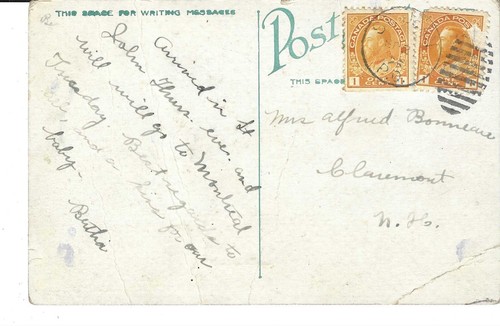 THIS SPACE FOR WRITING MESSAGES
Post
THIS SPACE
CANADA POSTAGE
1 CENT 1
CANADA POSTAGE
1 CENT 1
Arrived in St
John Thurs. eve. and
will will go to Montreal
Tuesday. Best regards to
and a kiss for our
baby.
Bertha
Mrs Alfred Bonneau
Claremont
N. H.